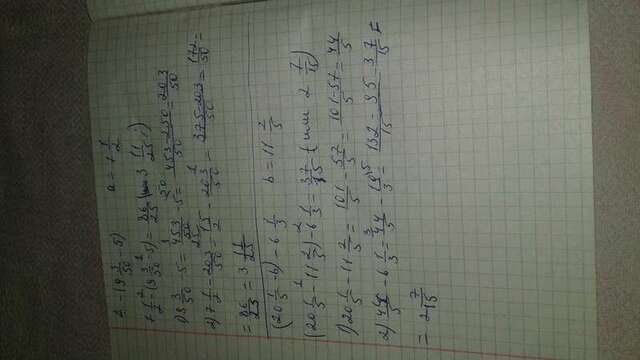 a - (9 3/50 - 5) a = 7 1/2
7 1/2 - (9 3/50 - 5) = 86/25 (или 3 11/25)
1) 9 3/50 - 5 = 453/50 - 5 = 453-250/50 = 203/50
2) 7 1/2 - 203/50 = 15/2 - 203/50 = 375-203/50 = 172/50 =
= 86/25 = 3 11/25
(20 1/5 - b) - 6 1/3 b = 11 2/5
(20 1/5 - 11 2/5) - 6 1/3 = 37/15 (или 2 7/15)
1) 20 1/5 - 11 2/5 = 101/5 - 57/5 = 101-57/5 = 44/5
2) 44/5 - 6 1/3 = 44/5 - 19/3 = 132-95/15 = 37/15 =
= 2 7/15